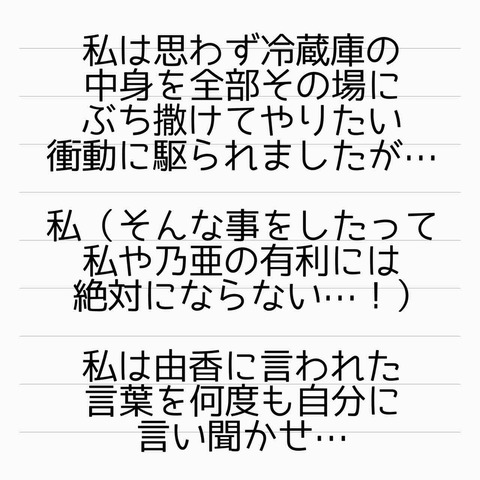 私は思わず冷蔵庫の
中身を全部その場に
ぶち撒けてやりたい
衝動に駆られましたが…
私（そんな事をしたって
私や乃亜の有利には
絶対にならない…！）
私は由香に言われた
言葉を何度も自分に
言い聞かせ…